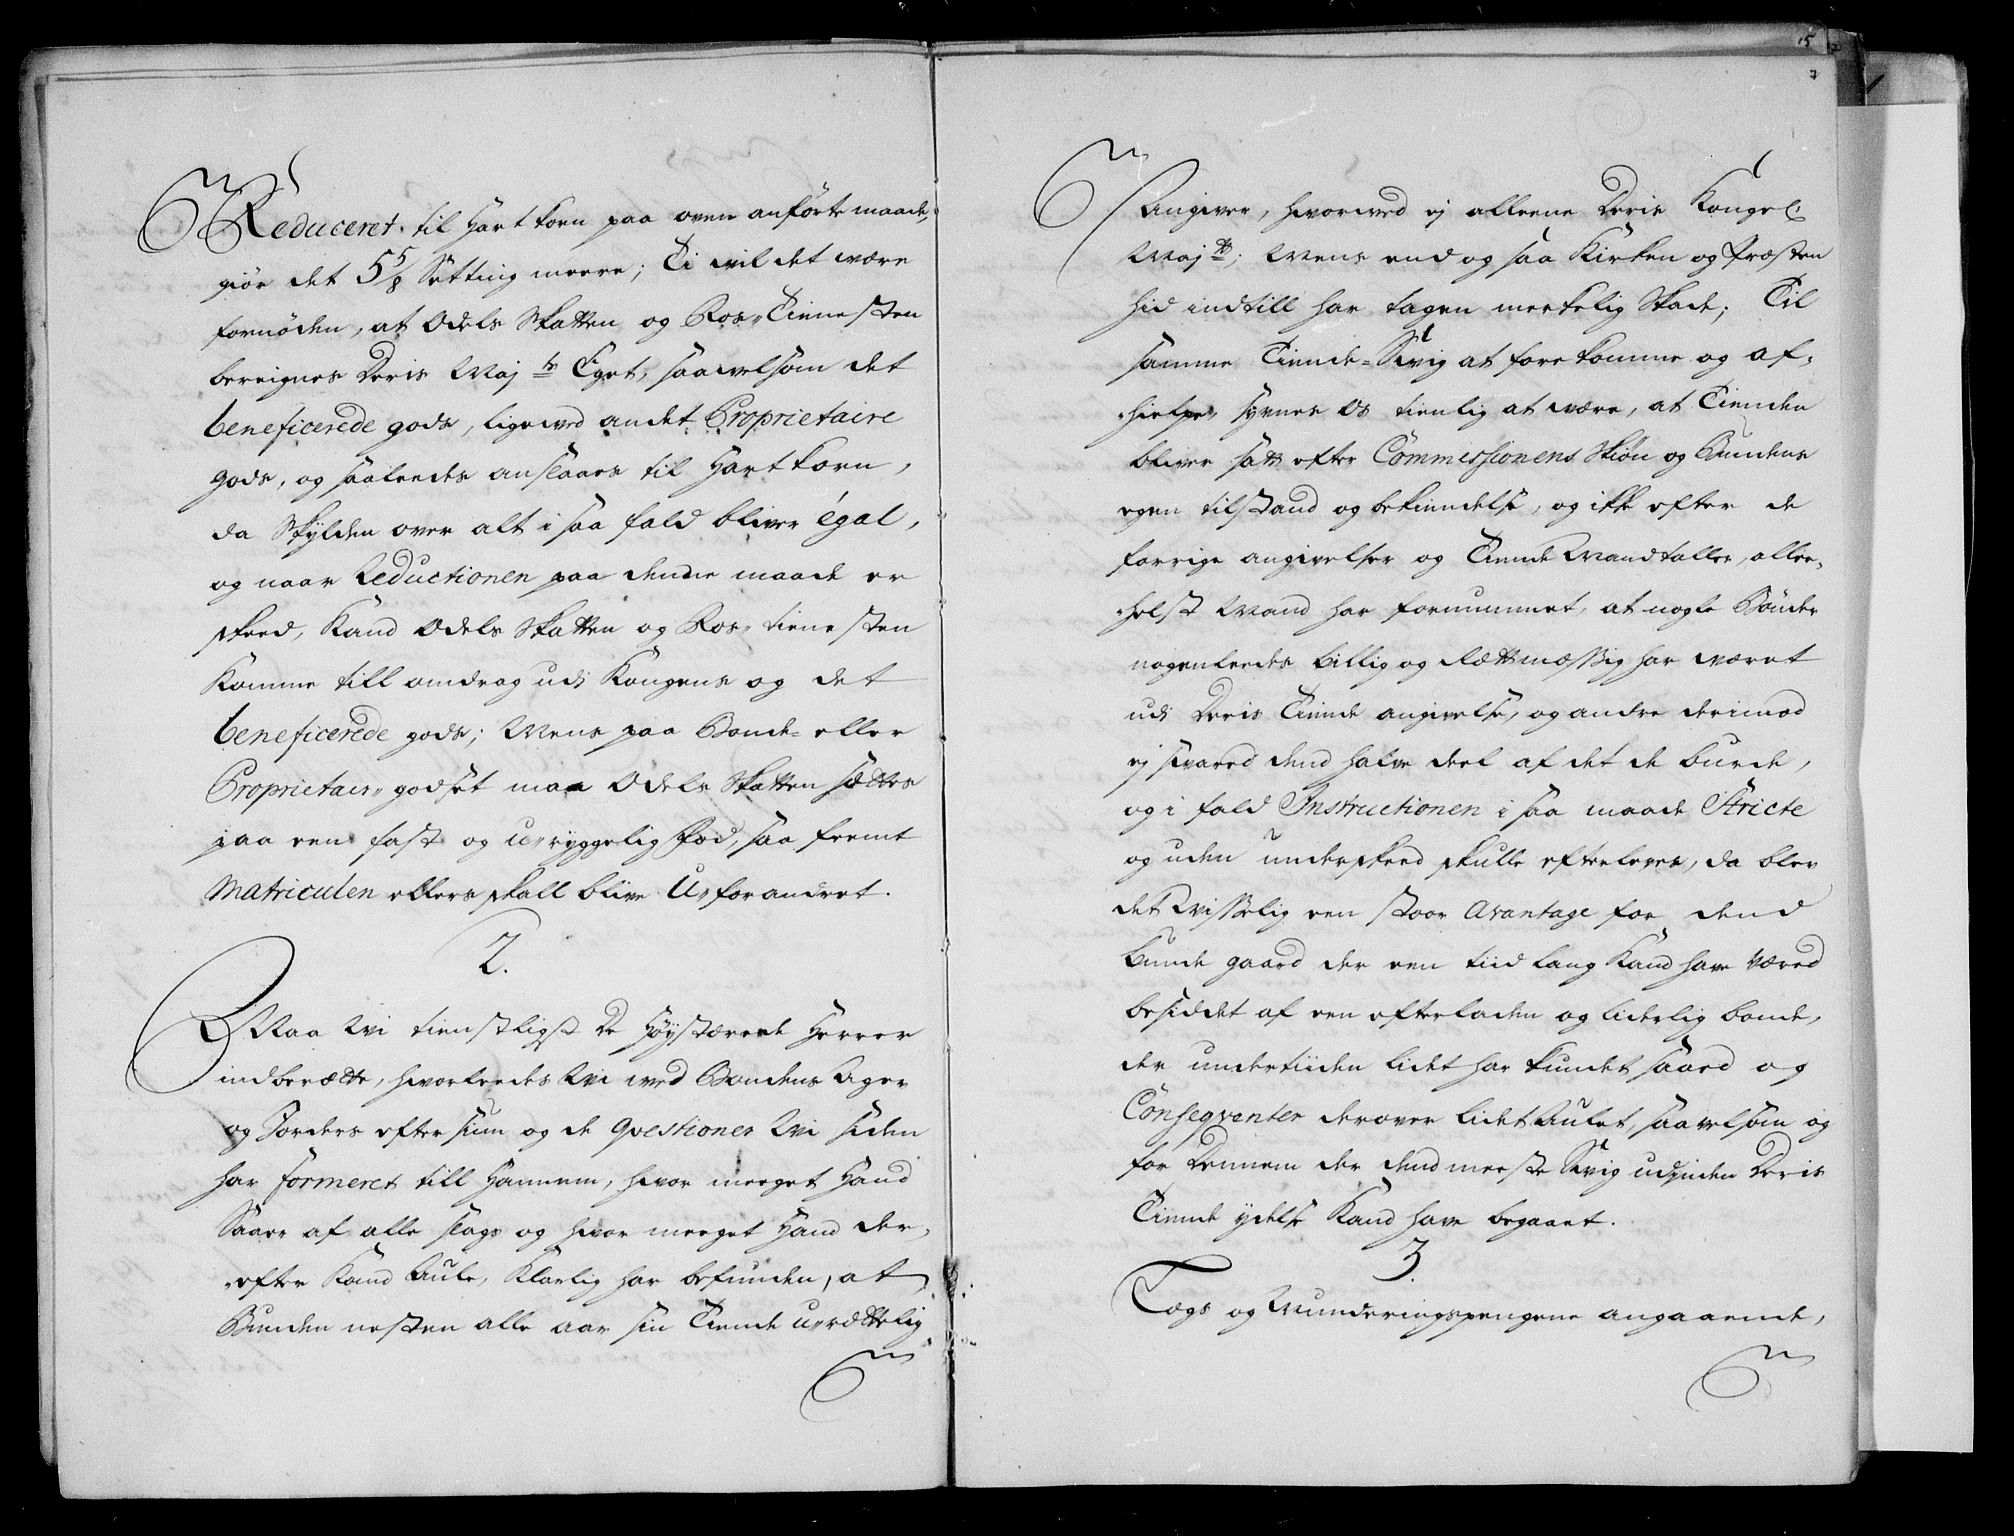 Reduceret til Hart korn paa oven anförte maade,
giör det 5 5/8 Sætting meere; Ti wil det være
fornöden, at Odels Skatten og Ros„Tienesten
bereignes Deris Maj ts Eget, saavelsom det
beneficerede gods, ligeved andet Proprietaire
gods, og saaleedes anslaaes til Hartkorn,
da Skylden over alt i saa fald bliver égal,
og naar Reductionen paa denne maade er
skeed, Kand Odels Skatten og Ros„tienesten
Komme till omdrag udi Kongens og det
beneficerede gods; Mens paa Bonde- eller
Proprietair„godset maa Odels Skatten sættes
paa een fast og u„ryggelig Fod, saa fremt
Matriculen ellers skall blive U„forandret.
2.
Maa Wi tienstligst De Höystærede Herrer
indberætte, hvorleedes Wi ved Bondens Ager
og Jorders eftersiun og de Qvestioner Wi siden
har formeret till Hannem, hvor meeget Hand
Saaer af alle slags og hvor meeget Hand der„
„efter Kand aule, Klarlig har befunden, at
Bunden nesten alle aar sin Tiende u„rættelig
15
Angiver, hvorved ej alleene Deris Kongel:
Maj ts; Mens end og saa Kirken og Præsten
hid indtill har tagen merkelig Skade; Til
samme Tiende-Svig at forekomme og af„
„hielpe, synes Os tienlig at være, at Tienden
bliver satt efter Commissionens Skiön og Bundens
egen tilstand og bekiendelse, og ikke efter de
forrige angivelser og Tiende Mandtaller, aller„
„helst Mand har fornummet, at nogle Bönder
nogenleedes billig og Rættmæssig har været
udi Deris Tiende angivelse, og andre derimod
ej svared dend halve deel af det de burde,
og i fald Instructionen i saa maade Stricte
og uden underskeed skulle efterleves, da blev
det Wisselig een stoor Avantage for dend
bunde gaard der een tiid lang Kand have Væred
besiddet af een efterladen og liderlig bonde,
der undertiiden lidet har kundet saaed og
Conseqventer derover lidet Aulet, saavelsom og
for Dennem der dend meeste Svig udi Deris
Tiende ydelse Kand have begaaet.
3.
Tægs og Wurderingspengene angaaende,